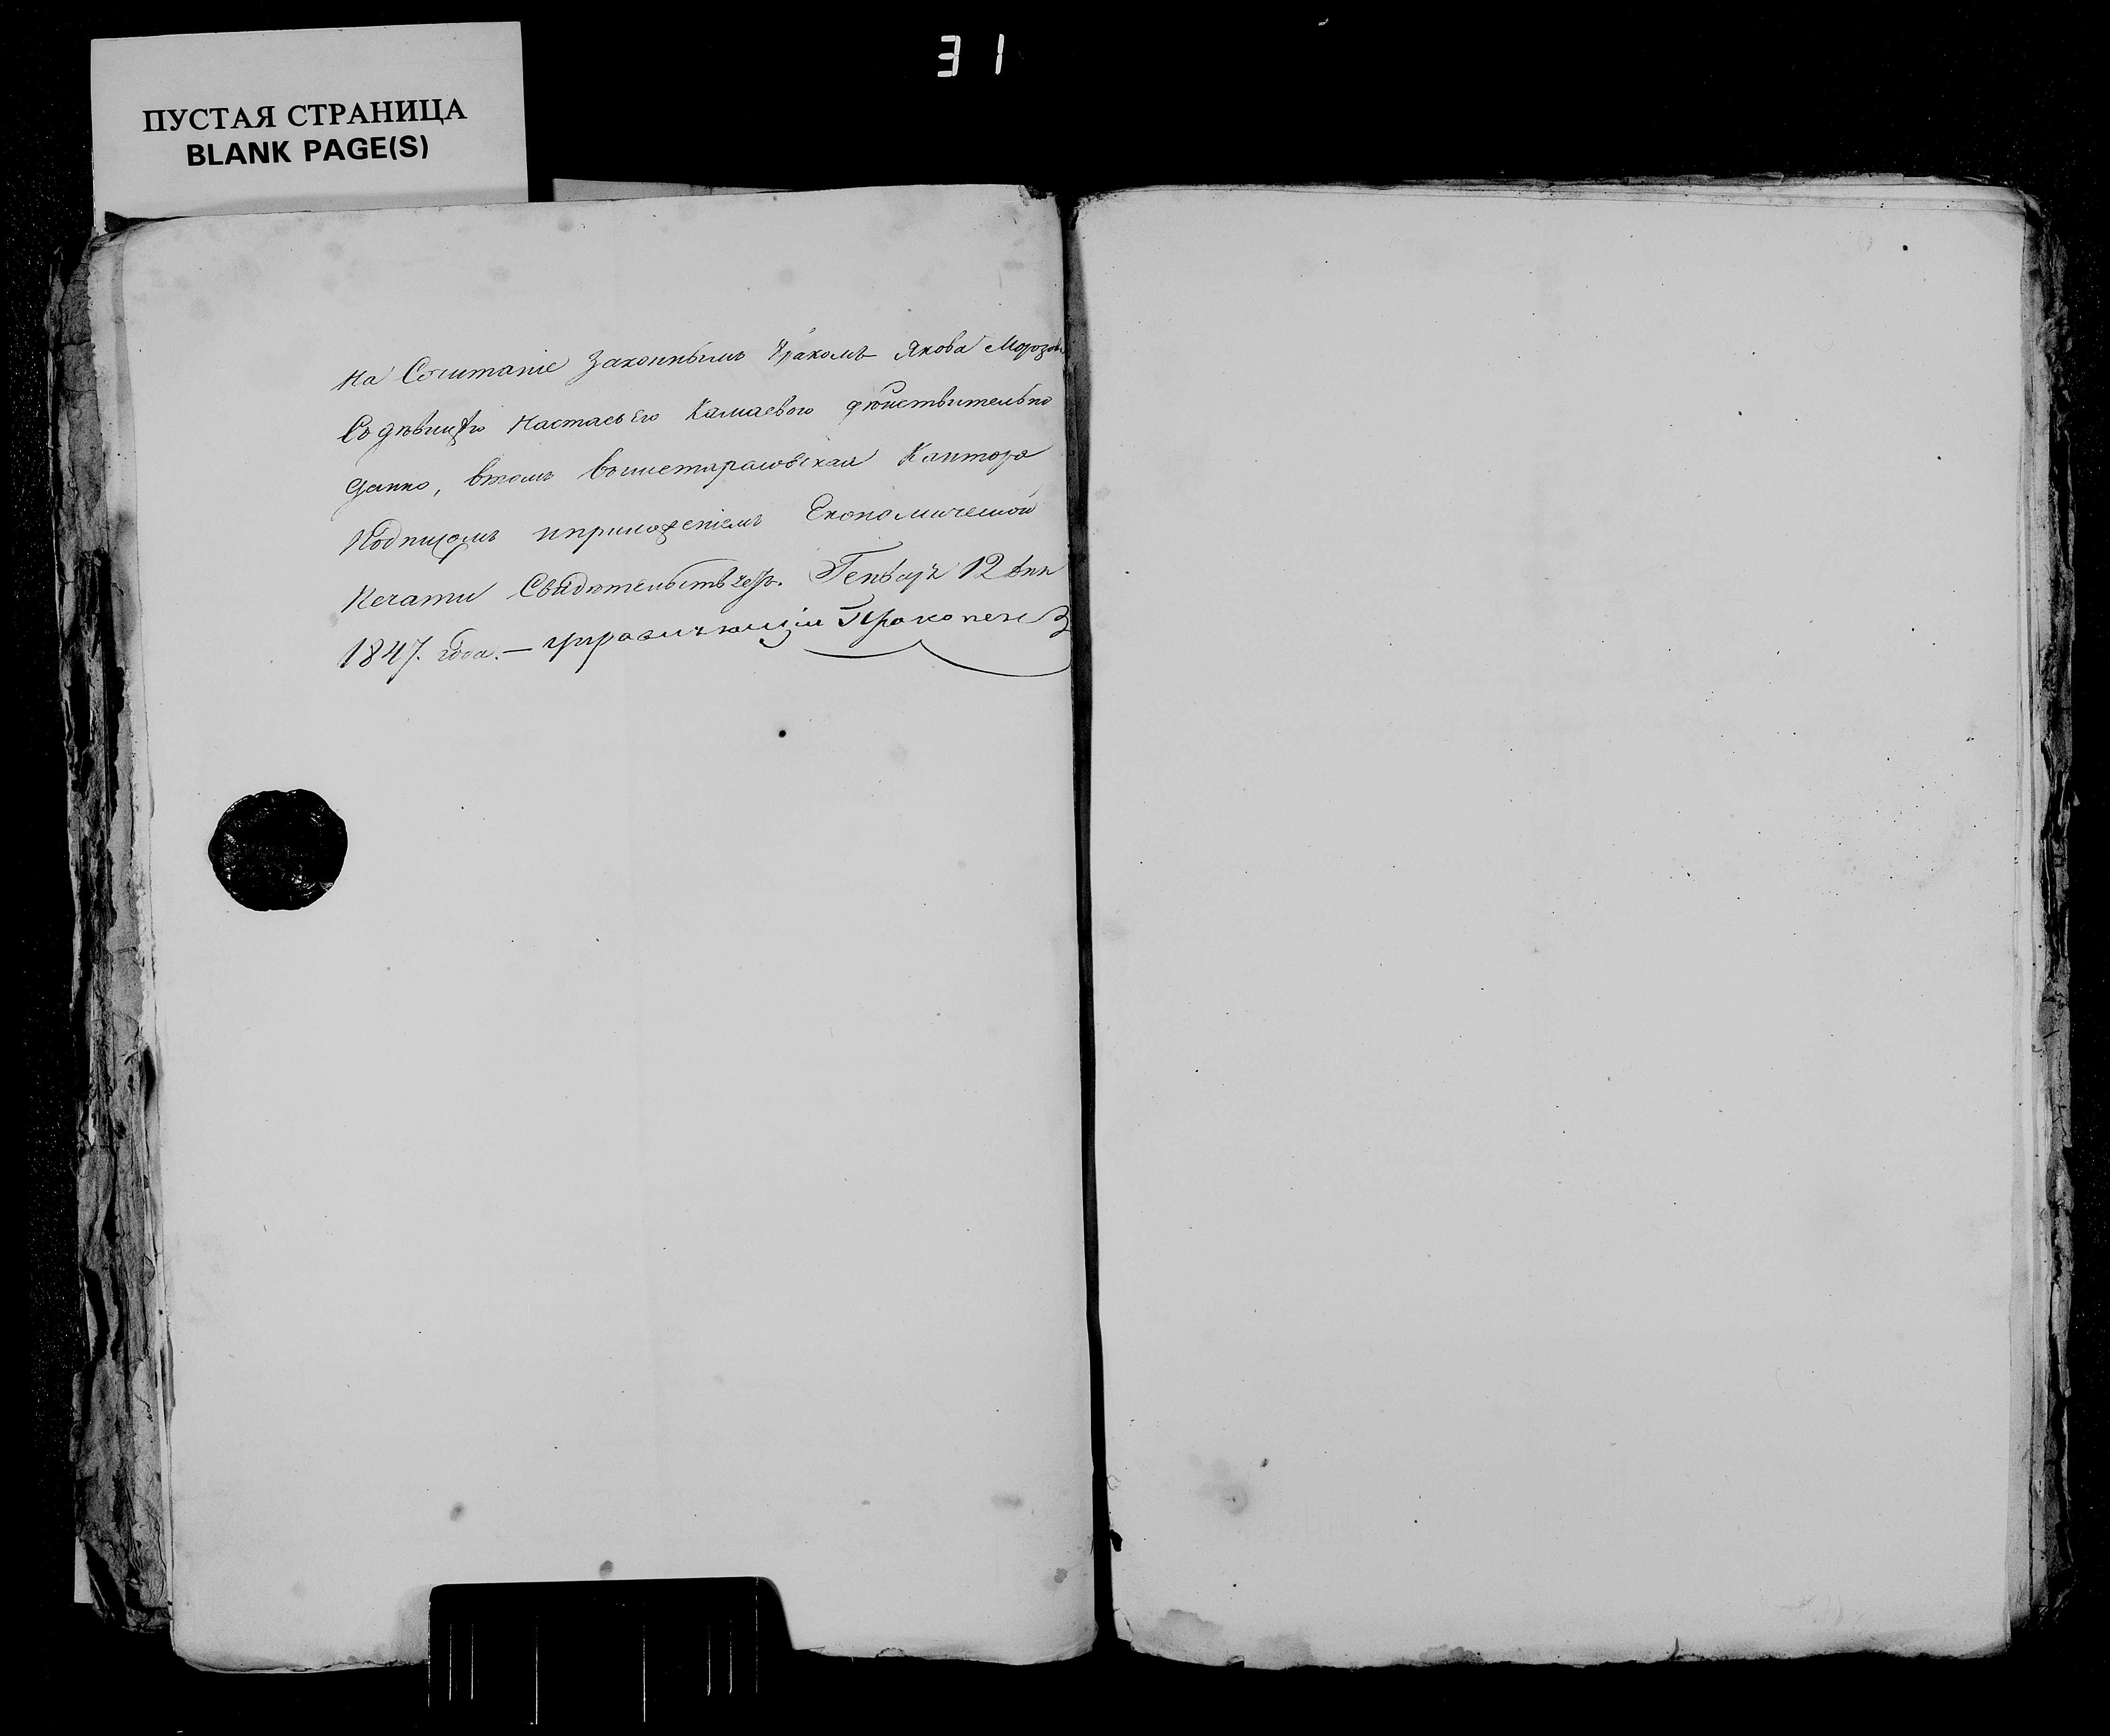 31
ПУСТАЯ СТРАНИЦА
BLANK PAGE(S)
на Сочитаніе Законнымъ бракомъ Якова Морозова
Съ девицею Настасьею Камаевою действительно
Данно, втомъ Кантора
Подписомъ иприложеніемъ Економической
Печати Свидетельствуетъ. Генваря 12 дня
1847. года. — управляющій Прокопей